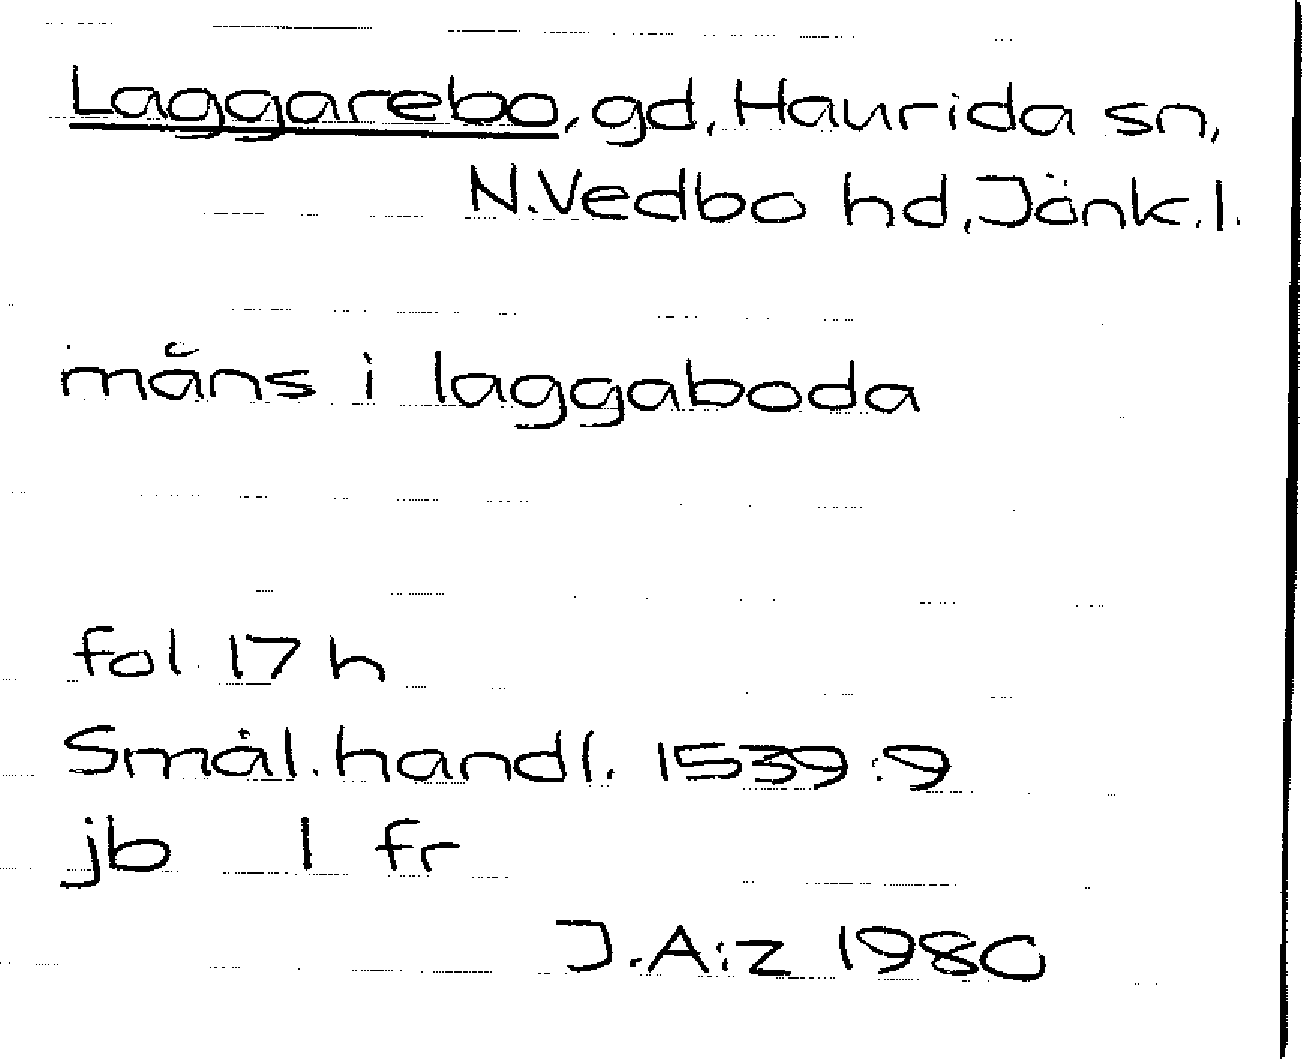 Laggarebo, gd, Haurida sn,
N.Vedbo hd, Jönk. l.
måns i laggaboda
fol. 17 h
Smål. handl. 1539:9
jb 1 fr
J.A:z 1980